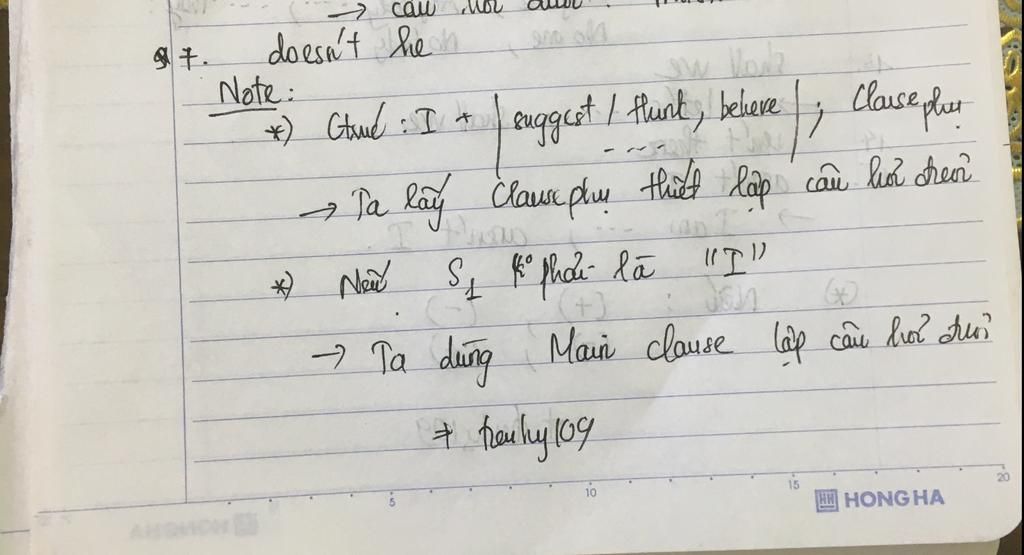 → câu hỏi đuôi
7. doesn't he
Note:
*) Ctruc : I + | suggest / think, believe | ; Clause phụ
- - - -
→ Ta lấy Clause phụ thiết lập câu hỏi đuôi
*) Nếu S1 ko phải là "I"
→ Ta dùng Main clause lập câu hỏi đuôi
⇒ heuhy109
5 10 15 20
HONG HA